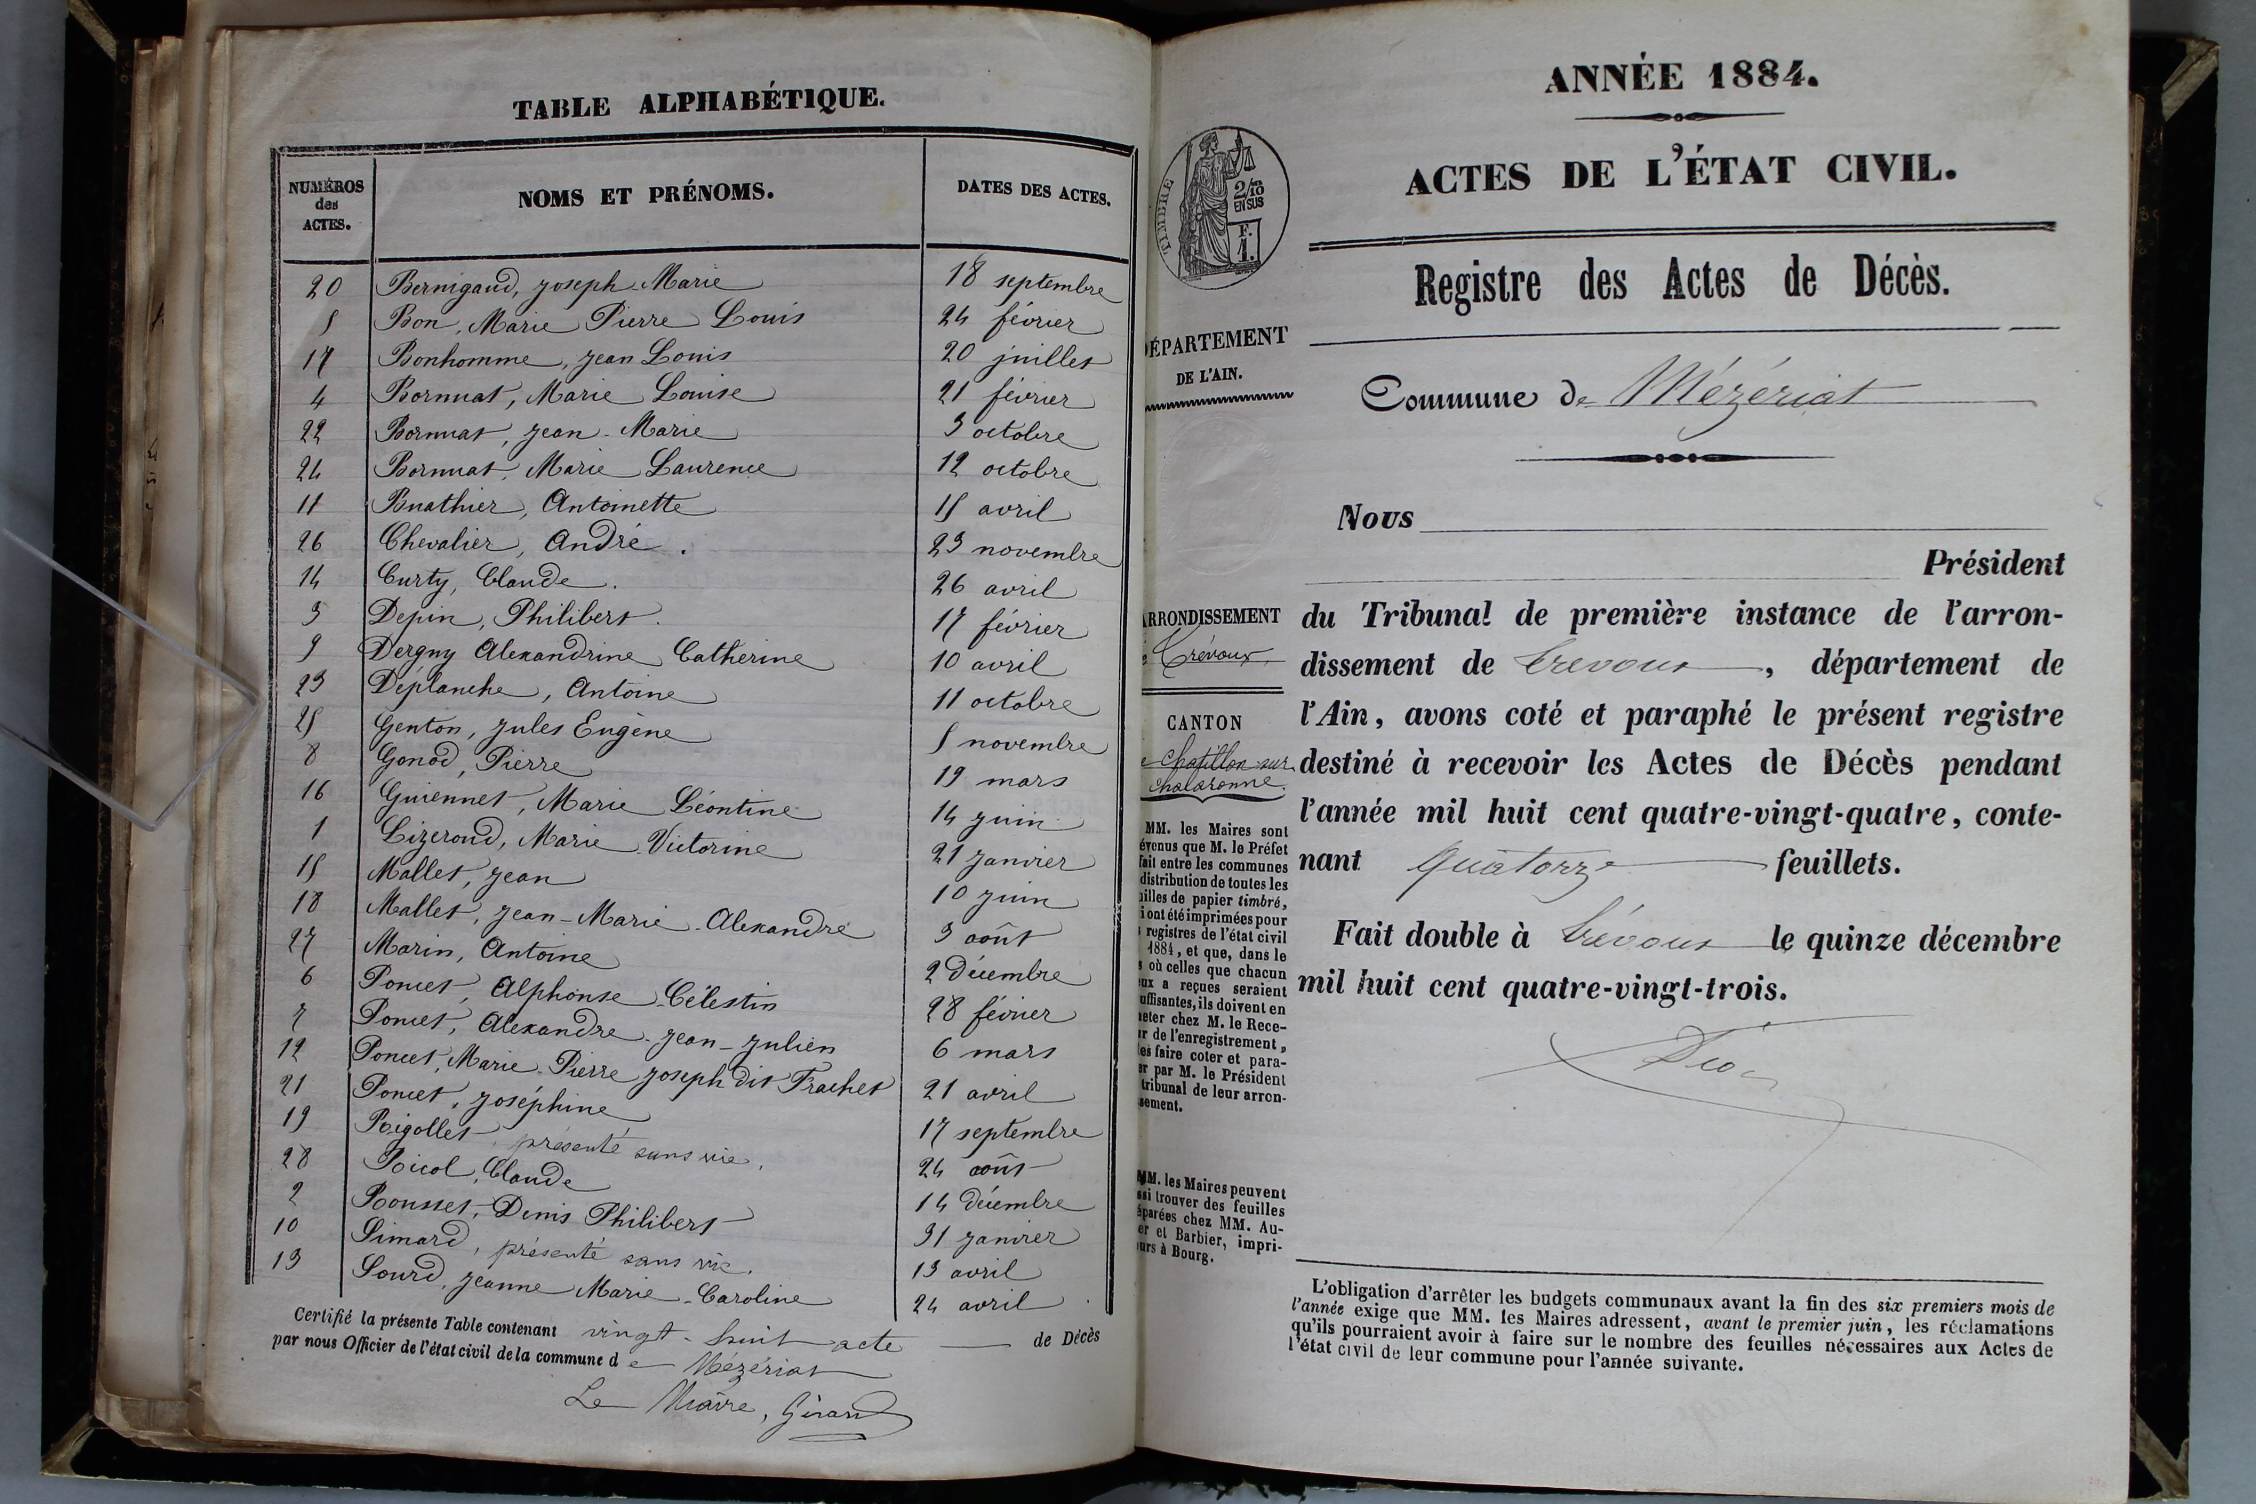 TABLE ALPHABÉTIQUE.
NUMÉROS des ACTES. NOMS ET PRÉNOMS. DATES DES ACTES.
20 Bernigaud, Joseph-Marie 18 septembre
5 Bon, Marie Pierre Louis 24 février
17 Bonhomme, Jean Louis 20 juillet
4 Bornuat, Marie Louise 21 février
22 Bornuat, Jean-Marie 3 octobre
24 Bornuat, Marie Laurence 12 octobre
11 Buathier, Antoinette 15 avril
26 Chevalier, André. 23 novembre
14 Curty, Claude. 26 avril
3 Depin, Philibert. 17 février
9 Dergny Alexandrine Catherine 10 avril
23 Déplanche, Antoine 11 octobre
25 Genton, Jules Eugène 5 novembre
8 Gonod, Pierre 19 mars
16 Guiennet, Marie Léontine 14 juin
1 Lizeroud, Marie-Victorine 21 janvier
15 Mallet, Jean 10 juin
18 Mallet, Jean-Marie-Alexandre 3 août
27 Marin, Antoine 2 décembre
6 Poncet, Alphonse-Célestin 28 février
7 Poncet, Alexandre-Jean-Julien 6 mars
12 Poncet, Marie-Pierre Joseph dit Frachet 21 avril
21 Poncet, Joséphine 17 septembre
19 Rigollet, présenté sans vie. 24 août
28 Roicol, Claude 14 décembre
2 Rousset, Denis Philibert 31 janvier
10 Simard, présenté sans vie. 13 avril
13 Sourd, Jeanne Marie-Caroline 24 avril
Certifié la présente Table contenant vingt-huit acte de Décès
par nous Officier de l'état civil de la commune de Mézériat
Le Maire, Girard
ANNÉE 1884.
ACTES DE L'ÉTAT CIVIL.
TIMBRE
2/10
EN SUS
F.
1.
Registre des Actes de Décès.
DÉPARTEMENT
DE L'AIN.
Commune de Mézériat
Nous
Président
ARRONDISSEMENT
Trévoux
CANTON
Chatillon sur
Chalaronne.
du Tribunal de première instance de l'arron-
dissement de Trévoux, département de
l'Ain, avons coté et paraphé le présent registre
destiné à recevoir les Actes de Décès pendant
l'année mil huit cent quatre-vingt-quatre, conte-
nant quatorze feuillets.
Fait double à Trévoux le quinze décembre
mil huit cent quatre-vingt-trois.
MM. les Maires sont
évenus que M. le Préfet
fait entre les communes
distribution de toutes les
uilles de papier timbré,
i ont été imprimées pour
s registres de l'état civil
1884, et que, dans le
s où celles que chacun
eux a reçues seraient
uffisantes, ils doivent en
heter chez M. le Rece-
ur de l'enregistrement,
les faire coter et para-
er par M. le Président
tribunal de leur arron-
sement.
MM. les Maires peuvent
ssi trouver des feuilles
éparées chez MM. Au-
er et Barbier, impri-
urs à Bourg.
L'obligation d'arrêter les budgets communaux avant la fin des six premiers mois de
l'année exige que MM. les Maires adressent, avant le premier juin, les réclamations
qu'ils pourraient avoir à faire sur le nombre des feuilles nécessaires aux Actes de
l'état civil de leur commune pour l'année suivante.